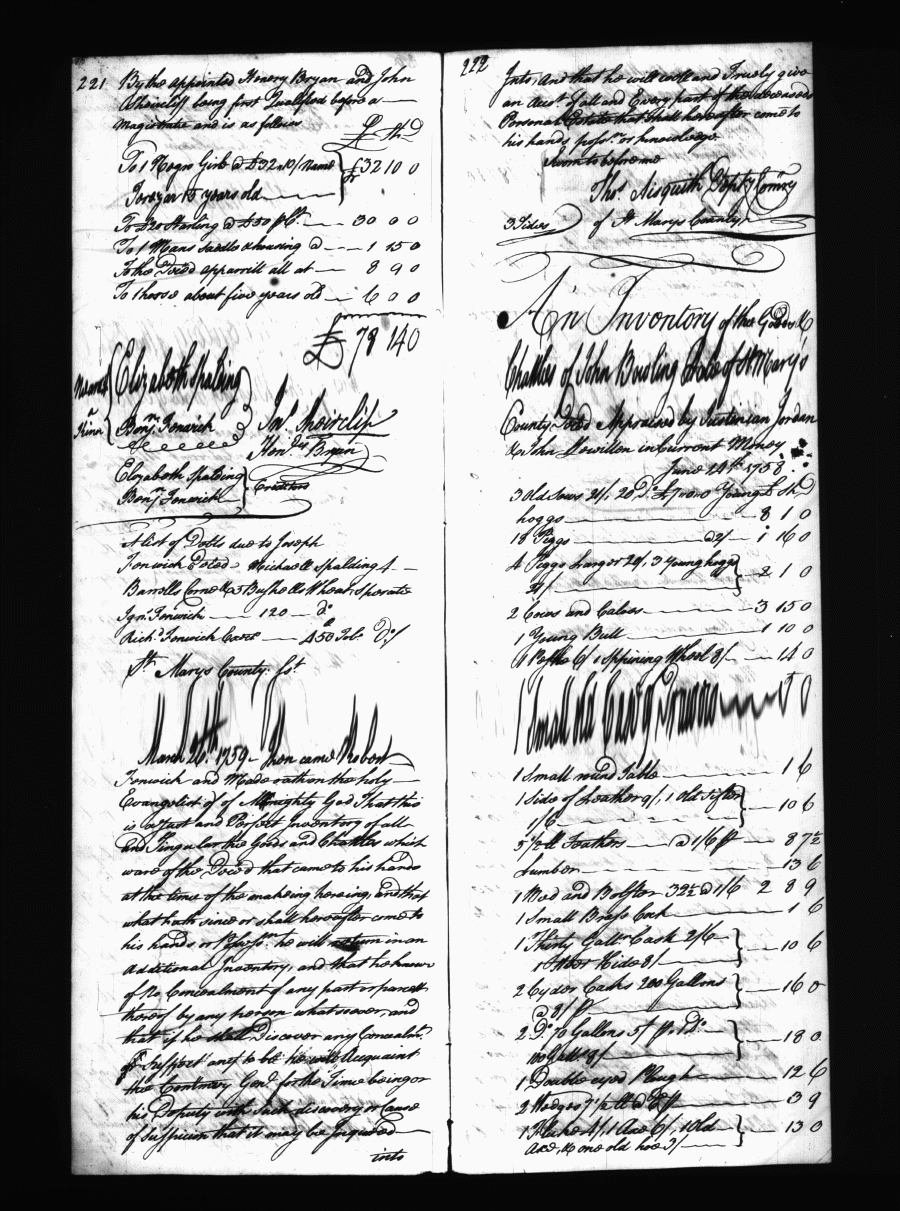 221
By the appointed Henery Bryan and John
Shoircliff being first Qualified before a
Magistrate and is as follows
£ Sh D
To 1 Negro Girle @ £32..10/ Name
£32 10 0
for Year 15 years old
To £20 Starling @ £50 p Ct. 30 0 0
To 1 Mans Saddle & housing @ 1 15 0
To the Deced apparrill all at 8 9 0
To 1 horse about five years old 6 0 0
£ 78 14 0
Nearest
a
Kinn
Elizabeth Spalding
Benja. Fenwick
Jno. Shoircliff
Hen. Bryan
Elizabeth Spalding
Benja. Fenwick
Creditors
A list of Debts due to Joseph
Fenwick Deced. Michaell Spalding 4
Barrells Corne & 5 Bushells Wheat Sperate
Ign. Fenwick 120 Do
Richd. Fenwick Exer. 450 Tob. Do/
St. Marys County Sct.
March 26th. 1759 Then came Robert
Fenwick and Made oath on the holy
Evangelist of of Almighty God That this
is a Just and Perfect Inventory of all
and Singular the Goods and Chattles which
ware of the Deced that came to his hands
at the time of the makeing hereing, and that
what hath since or shall hereafter come to
his hands or Possess. he will return in an
additional Inventory, and that he knows
of No Concealment of any part or parcell
thereof by any person whatsoever, and
that if he shall Discover any Concealm.
or Suspect any to be he will Acquaint
the Comisary Genl. for the Time being or
his Deputy with Such discovery or Cause
of Suspicion that it may be Inquired
into
222
Into, And that he will well and Truely give
an Acct. of all and Every part of the deceaseds
Personal Estate that shall hereafter come to
his hands possn. or knowledge.
Sworn to before me
Thos. Aisquith Depty Comry
3 Sides of St Marys County
An Inventory of the Goods &
Chattles of John Bowling Late of St Mary's
County Deced Appraised by Justinian Jordan
& John Hewillon in Current Money
June 24th. 1758
3 Old Sows 21/. 20 Do. £7..0..0 Young £ Sh D
hoggs 8 1 0
18 Piggs @ 2/ 1 16 0
4 Piggs Larger 20/. 3 Young hoggs
21/ 2 1 0
2 Cows and Calves 3 15 0
1 Young Bull 1 10 0
6/ 1 Spining Wheel 8/ 14 0
1 Small old 5 0
1 Small round Table 1 6
1 Side of Leather 9/. 1 Old Sifter
1/6 10 6
5 ½ lb Feathers @ 1/6 p 8 7½
Lumber 13 6
1 Bed and Bolster 32½ @ 1/6 2 8 9
1 Small Brass Cock 1 6
1 Thirty Galln. Cask 2/6
1 Hide 8/ 10 6
2 Cyder Casks 200 Gallons
@ 2/ p 16 0
2 Do. 70 Gallons 5/ p. Do.
100 Galls 9/ 18 0
1 Double eyed Plough 12 6
2 Wedges 7 ½ lb @ 3 9
1 4/. 1 Axe 6/. 1 Old
Axe, & one old hoe 3/ 13 0